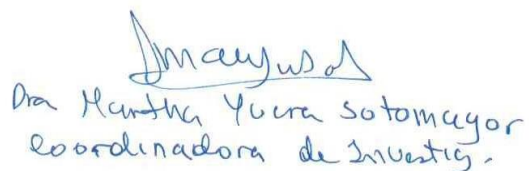 Dra Martha Yucra Sotomayor
Coordinadora de Investig.